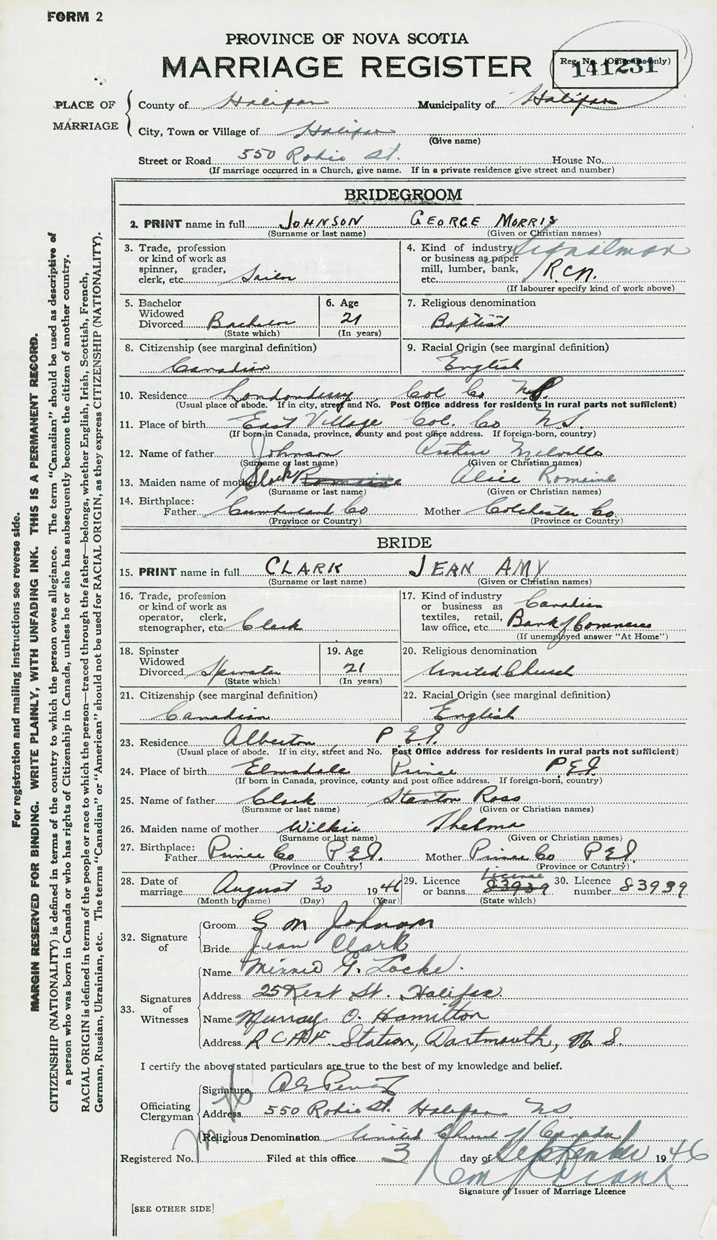 FORM 2
PROVINCE OF NOVA SCOTIA
MARRIAGE REGISTER
Reg. No. (Office use only)
141231
PLACE OF MARRIAGE
County of Halifax Municipality of Halifax
City, Town or Village of Halifax
(Give name)
Street or Road 550 Robie St. House No.
(If marriage occurred in a Church, give name. If in a private residence give street and number)
BRIDEGROOM
2. PRINT name in full JOHNSON GEORGE MORRIS
(Surname or last name) (Given or Christian names)
3. Trade, profession or kind of work as spinner, grader, clerk, etc. Sailor
4. Kind of industry or business as paper mill, lumber, bank, etc. Signalman R.C.N.
(If labourer specify kind of work above)
5. Bachelor Widowed Divorced Bachelor
(State which)
6. Age 21
(In years)
7. Religious denomination
Baptist
8. Citizenship (see marginal definition)
Canadian
9. Racial Origin (see marginal definition)
English
10. Residence Londonderry Col. Co. N.S.
(Usual place of abode. If in city, street and No. Post Office address for residents in rural parts not sufficient)
11. Place of birth East Village Col. Co. N.S.
(If born in Canada, province, county and post office address. If foreign-born, country)
12. Name of father Johnson Arthur Melville
(Surname or last name) (Given or Christian names)
13. Maiden name of mother Romaine Alice Romaine
(Surname or last name) (Given or Christian names)
14. Birthplace:
Father Cumberland Co Mother Colchester Co.
(Province or Country) (Province or Country)
BRIDE
15. PRINT name in full CLARK JEAN AMY
(Surname or last name) (Given or Christian names)
16. Trade, profession or kind of work as operator, clerk, stenographer, etc. Clerk
17. Kind of industry or business as textiles, retail, law office, etc. Canadian Bank of Commerce
(If unemployed answer "At Home")
18. Spinster Widowed Divorced Spinster
(State which)
19. Age 21
(In years)
20. Religious denomination
United Church
21. Citizenship (see marginal definition)
Canadian
22. Racial Origin (see marginal definition)
English
23. Residence Alberton, P.E.I.
(Usual place of abode. If in city, street and No. Post Office address for residents in rural parts not sufficient)
24. Place of birth Elmsdale Prince P.E.I.
(If born in Canada, province, county and post office address. If foreign-born, country)
25. Name of father Clark Stanton Ross
(Surname or last name) (Given or Christian names)
26. Maiden name of mother Wilkie Thelma
(Surname or last name) (Given or Christian names)
27. Birthplace:
Father Prince Co P.E.I. Mother Prince Co P.E.I.
(Province or Country) (Province or Country)
28. Date of marriage August 30 1946
(Month by name) (Day) (Year)
29. Licence or banns 83939 License
(State which)
30. Licence number 83939
32. Signature of
Groom G M Johnson
Bride Jean Clark
33. Signatures of Witnesses
Name Minnie G. Locke.
Address 25 Kent St. Halifax
Name Murray O. Hamilton
Address R C A F Station, Dartmouth, N. S.
I certify the above stated particulars are true to the best of my knowledge and belief.
Officiating Clergyman
Signature
Address 550 Robie St. Halifax NS
Religious Denomination United Church of Canada
Registered No. Filed at this office 3 day of September 1946
Signature of Issuer of Marriage Licence
[SEE OTHER SIDE]
For registration and mailing instructions see reverse side.
MARGIN RESERVED FOR BINDING. WRITE PLAINLY, WITH UNFADING INK. THIS IS A PERMANENT RECORD.
CITIZENSHIP (NATIONALITY) is defined in terms of the country to which the person owes allegiance. The term "Canadian" should be used as descriptive of
a person who was born in Canada or who has rights of Citizenship in Canada, unless he or she has subsequently become the citizen of another country.
RACIAL ORIGIN is defined in terms of the people or race to which the person—traced through the father—belongs, whether English, Irish, Scottish, French,
German, Russian, Ukrainian, etc. The terms "Canadian" or "American" should not be used for RACIAL ORIGIN, as they express CITIZENSHIP (NATIONALITY).